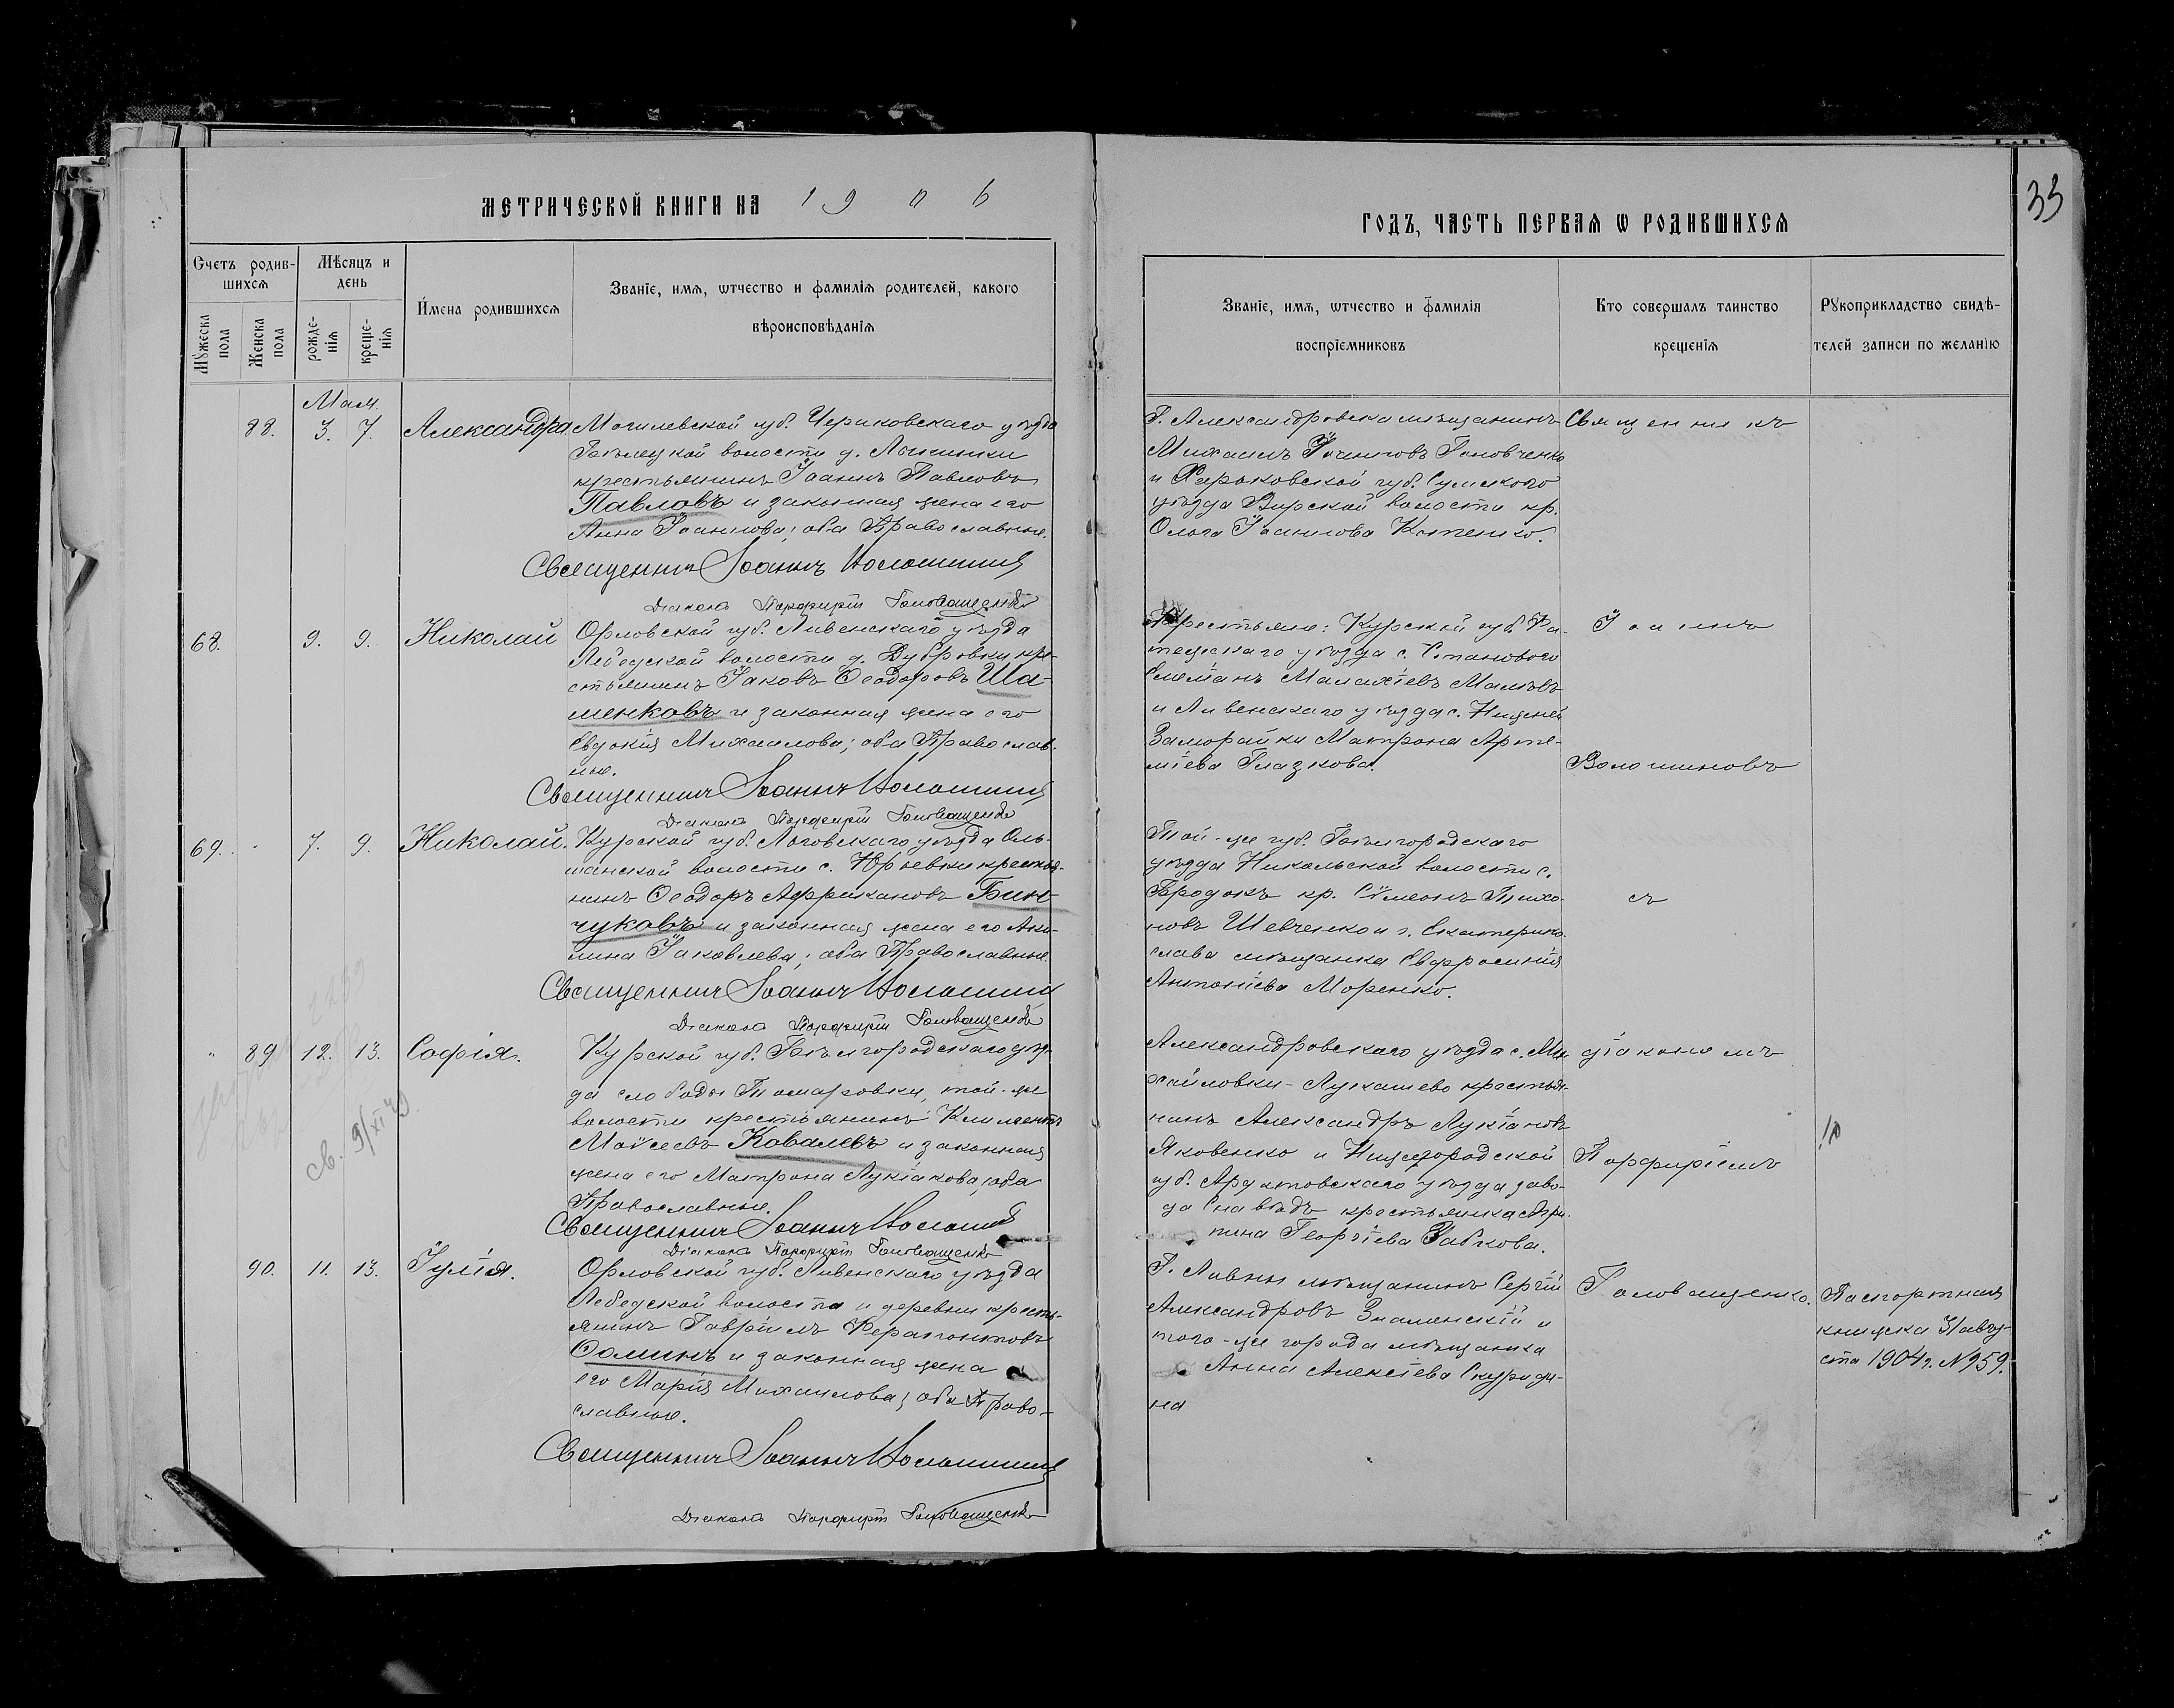 МЕТРИЧЕСКОЙ КНИГИ НА 1906
ГОДЪ, ЧАСТЬ ПЕРВАѦ Ѡ РОДИВШИХСѦ
33
Счетъ родив-
шихсѧ
Мѣсяцъ и
день
Мꙋжеска
пола
Женска
пола
рожде-
нія
креще-
нія
Имена родившихсѧ
Званіе, имѧ, ѡтчество и фамиліѧ родителей, какого
вѣроисповѣданіѧ
Званіе, имѧ, ѡтчество и фамиліѧ
воспріемниковъ
Кто совершалъ таинство
крещеніѧ
Рꙋкоприкладство свидѣ-
телей записи по желанію
Мая.
88. 3. 7. Александра.
Могилевской губ. Чериковскаго уѣзда
волости д.
крестьянинъ Іоаннъ Павловъ
Павловъ и законная жена его
Анна Іоаннова; оба Православные.
Священникъ Іоаннъ Волошинов
Діаконъ Порфирій Головащенко
Г. Александровска мѣщанинъ
Михаилъ Головченко
и Харьковской губ. Сумскаго
уѣзда Вирской волости кр.
Ольга Іоаннова
Священникъ
68. 9. 9. Николай
Орловской губ. Ливенскаго уѣзда
Лебедской волости д. Дубровки кре-
стьянинъ Іаковъ Ѳеодоровъ Ша-
менковъ и законная жена его
Евдокія Михаилова; оба Православ-
ные.
Священникъ Іоаннъ Волошинов
Діаконъ Порфирій Головащенко
Крестьяне: Курской губ. Фа-
тежскаго уѣзда с. Становаго
Малахіевъ
и Ливенскаго уѣзда с. Нижней
Заморайки Матрона Арте-
міева Глазкова.
Іоаннъ
Волошиновъ
69. 7. 9. Николай.
Курской губ. Льговскаго уѣзда Оль-
шанской волости с. Юрьевки крестья-
нинъ Ѳеодоръ Африкановъ Бин-
чуковъ и законная жена его Аки-
лина Іаковлева; оба Православные.
Священникъ Іоаннъ Волошинов
Діаконъ Порфирій Головащенко
Той-же губ. Бѣлгородскаго
уѣзда Никольской волости с.
Городокъ кр. Сѵмеонъ Тихо-
новъ Шевченко и г. Екатерино-
слава мѣщанка Евфросинія
Антоніева Моренко.
съ
89. 12. 13. Софія.
Курской губ. Бѣлгородскаго уѣз-
да слободы Томаровки, той-же
волости крестьянинъ Климентъ
Моѵсеевъ Ковалевъ и законная
жена его Матрона Лукіанова; оба
Православные.
Священникъ Іоаннъ Волошинов
Діаконъ Порфирій Головащенко
св. 9/XI 49
Александровскаго уѣзда с. Ми-
хайловки-Лукашево крестья-
нинъ Александръ Лукіановъ
Яковенко и Нижегородской
губ. Ардатовскаго уѣзда заво-
да крестьянка
Георгіева
діакономъ
Порфиріемъ
90. 11. 13. Іулія.
Орловской губ. Ливенскаго уѣзда
Лебедской волости и деревни кресть-
янинъ Гавріилъ Ферапонтовъ
Ѳоминъ и законная жена
его Марія Михаилова; оба Право-
славные.
Священникъ Іоаннъ Волошинов
Діаконъ Порфирій Головащенко
Г. Ливны мѣщанинъ Сергій
Александровъ Знаменскій и
того-же города мѣщанка
Анна Алексіева Скуриди-
на
Головащенко.
Паспортная
книжка 31 авгу-
ста 1904 г. № 959.